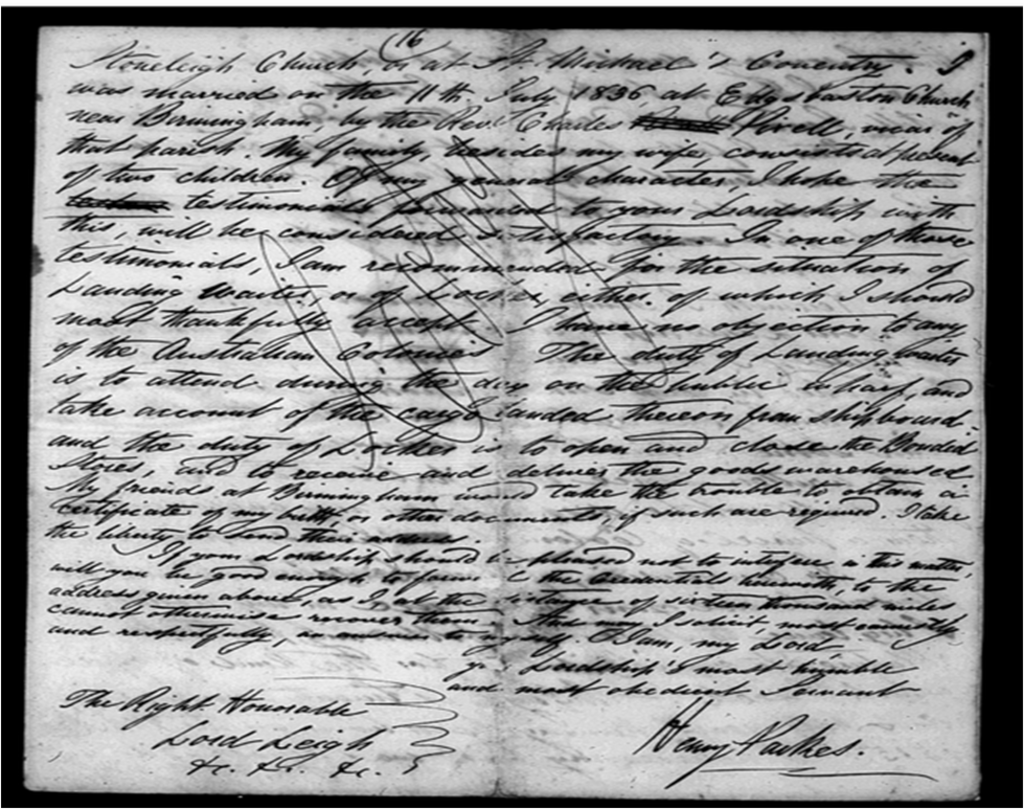 (16
Stoneleigh Church, or at St. Michael's Coventry. I
was married on the 11th July 1836 at Edgbaston Church
near Birmingham, by the Rev. Charles Pixell, vicar of
that parish. My family, besides my wife, consists at present
of two children. Of my general character, I hope the
testimonials forwarded to your Lordship with
this, will be considered satisfactory. In one of those
testimonials, I am recommended for the situation of
Landing Waiter, or of Locker, either of which I should
most thankfully accept. I have no objection to any
of the Australian Colonies. The duty of Landing Waiter
is to attend during the day on the public wharf, and
take account of the cargo landed thereon from shipboard.
and the duty of Locker is to open and close the Bonded
Stores, and to receive and deliver the goods warehoused.
My friends at Birmingham would take the trouble to obtain a
certificate of my birth, or other documents, if such are required. I take
the liberty to send their address.
If your Lordship should be pleased not to interfere in this matter,
will you be good enough to forward the credentials herewith, to the
address given above, as I at the distance of sixteen thousand miles
cannot otherwise recover them. And may I solicit, most earnestly
and respectfully, an answer to myself. I am, my Lord
yr Lordship's most humble
and most obedient Servant
Henry Parkes.
The Right Honorable
Lord Leigh
&c. &c. &c.